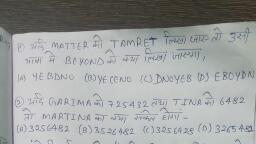 ① यदि MATTER को TAMRET लिखा जाए तो उसी
भाषा में BEYOND को क्या लिखा जाएगा,
(A) YEBDNO (B) YECONO (C) DNOYEB (D) EBOYDN
② यदि GARIMA को 725432 तथा TINA को 6482
तो MARTINA का क्या संकेत होगा -
(A) 3256482 (B) 3526482 (C) 3256428 (D) 3265482